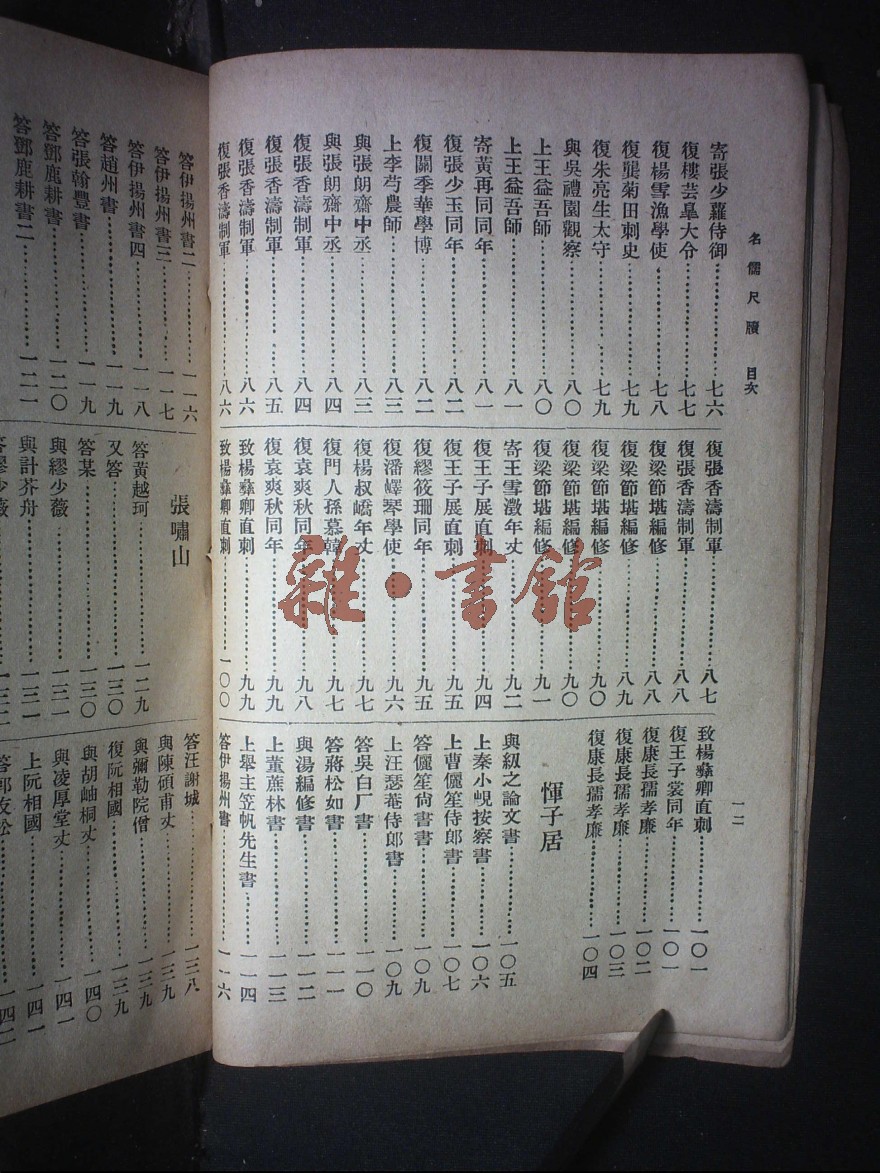 名儒尺牘 目次
一二
寄張少蘿侍御 七六
復樓芸臯大令 七七
復楊雪漁學使 七八
復龔菊田刺史 七九
復朱亮生太守 七九
與吳禮園觀察 八〇
上王益吾師 八〇
上王益吾師 八一
寄黃再同同年 八一
復張少玉同年 八二
復關季華學博 八二
上李芍農師 八三
與張朗齋中丞 八三
與張朗齋中丞 八四
復張香濤制軍 八四
復張香濤制軍 八五
復張香濤制軍 八六
復張香濤制軍 八六
復張香濤制軍 八七
復張香濤制軍 八八
復梁節堪編修 八八
復梁節堪編修 八九
復梁節堪編修 九〇
復梁節堪編修 九〇
復梁節堪編修 九一
寄王雪澂年丈 九二
復王子展直刺 九四
復王子展直刺 九五
復繆筱珊同年 九五
復潘嶧琴學使 九六
復楊叔嶠年丈 九七
復門人孫慕韓 九七
復袁爽秋同年 九八
復袁爽秋同年 九九
致楊彝卿直刺 九九
致楊彝卿直刺 一〇〇
致楊彝卿直刺 一〇一
復王子裳同年 一〇一
復康長孺孝廉 一〇二
復康長孺孝廉 一〇三
復康長孺孝廉 一〇四
惲子居
與紉之論文書 一〇五
上秦小峴按察書 一〇六
上曹儷笙侍郎書 一〇七
答儷笙尙書書 一〇九
上汪瑟菴侍郎書 一〇九
答吳白厂書 一一〇
答蔣松如書 一一一
與湯編修書 一一二
上董蔗林書 一一三
上舉主笠帆先生書 一一四
答伊揚州書 一一六
答伊揚州書二 一一六
答伊揚州書三 一一七
答伊揚州書四 一一八
答趙州書 一一九
答張翰豐書 一一九
答鄧鹿耕書 一二〇
答鄧鹿耕書二 一二一
張嘯山
答黃越珂 一二九
又答 一三〇
答某 一三〇
與繆少薇 一三一
與計芥舟 一三一
答繆少薇 一三二
答汪謝城 一三八
與陳碩甫丈 一三九
與彌勒院僧 一三九
復阮相國 一三九
與胡岫桐丈 一四〇
與凌厚堂丈 一四一
上阮相國 一四一
答郭友松 一四二
雜·書館